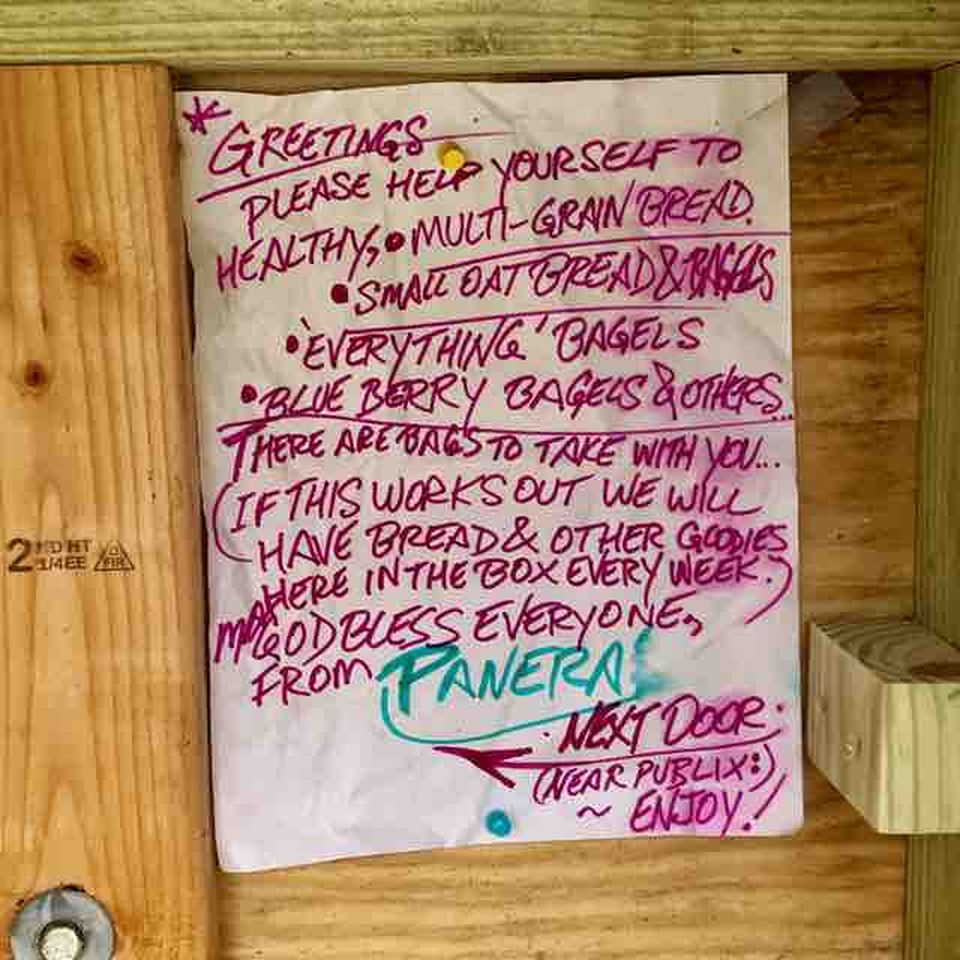 * GREETINGS
PLEASE HELP YOURSELF TO
HEALTHY, • MULTI-GRAIN BREAD.
• SMALL OAT BREAD & BAGELS
• 'EVERYTHING' BAGELS
• BLUE BERRY BAGELS & OTHERS...
THERE ARE BAGS TO TAKE WITH YOU...
(IF THIS WORKS OUT WE WILL
HAVE BREAD & OTHER GOODIES
HERE IN THE BOX EVERY WEEK.)
GOD BLESS EVERYONE,
FROM PANERA!
NEXT DOOR.
(NEAR PUBLIX:)
~ ENJOY!
2
FIR